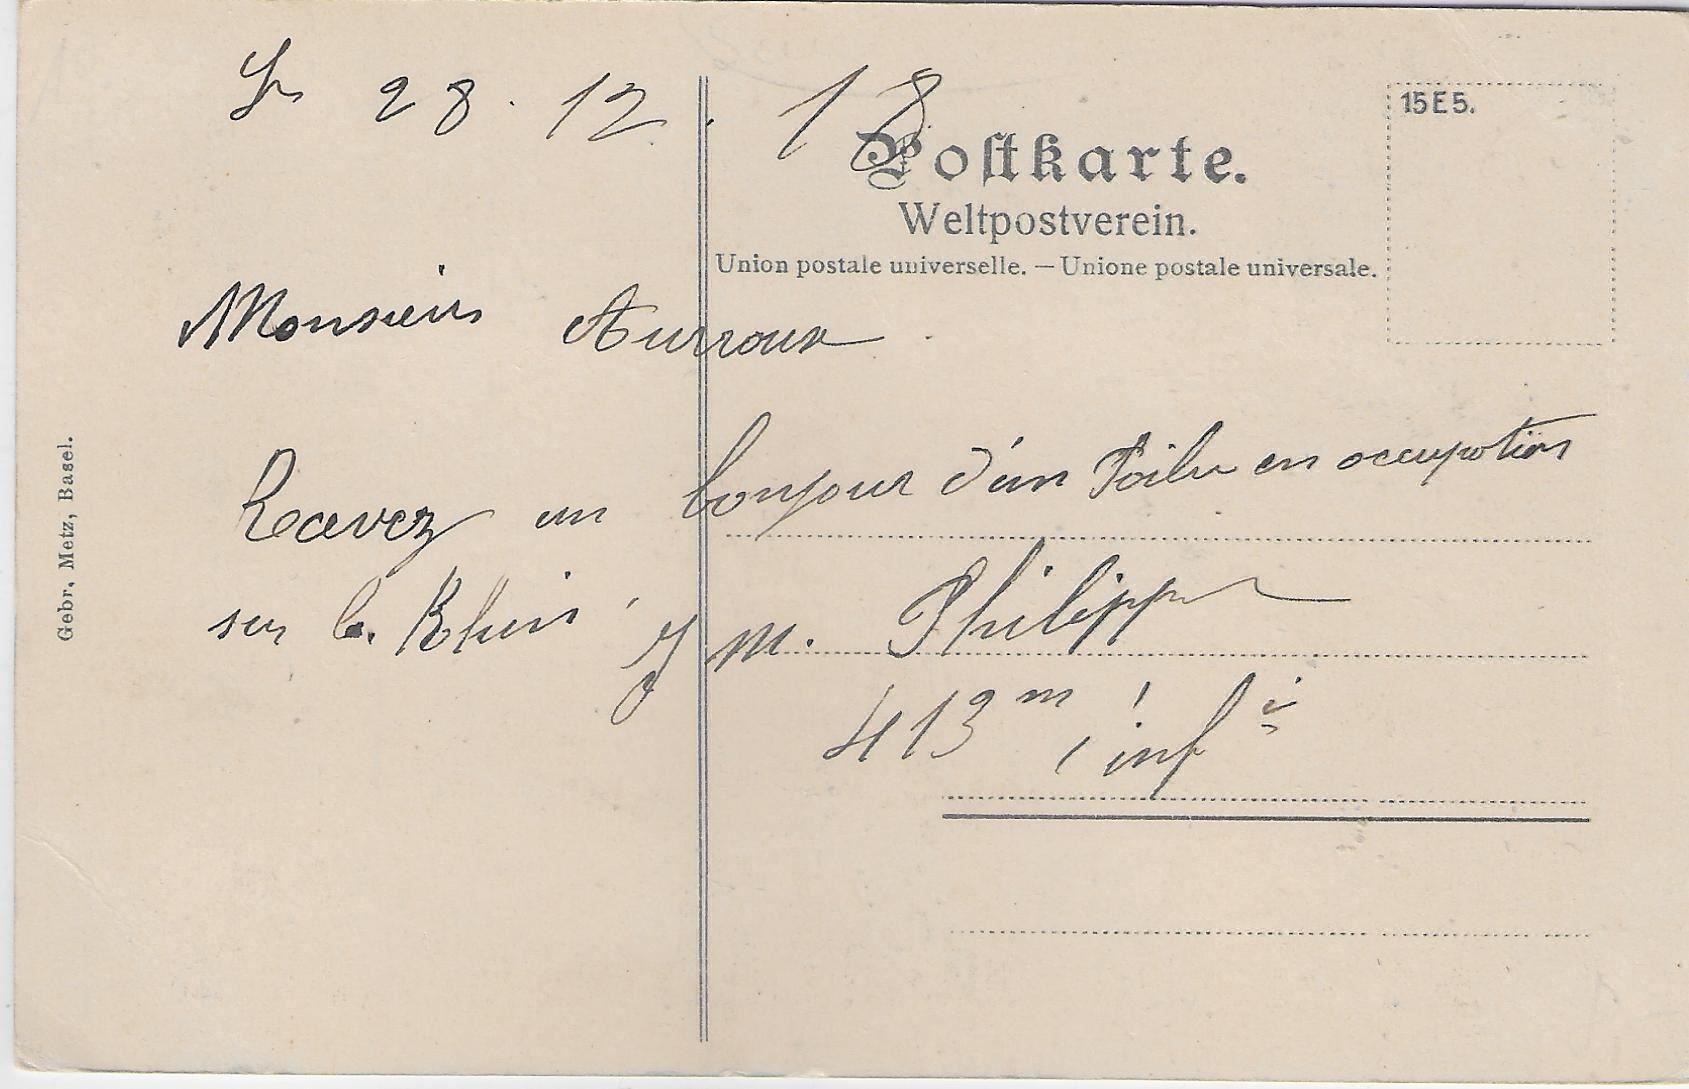 Le 28. 12. 18
15E5.
Postkarte.
Weltpostverein.
Union postale universelle. — Unione postale universale.
Monsieur Auroux.
Recevez un bonjour d'un Poilu en occupation
sur le Rhin
J M. Philippe
413m inf
Gebr. Metz, Basel.